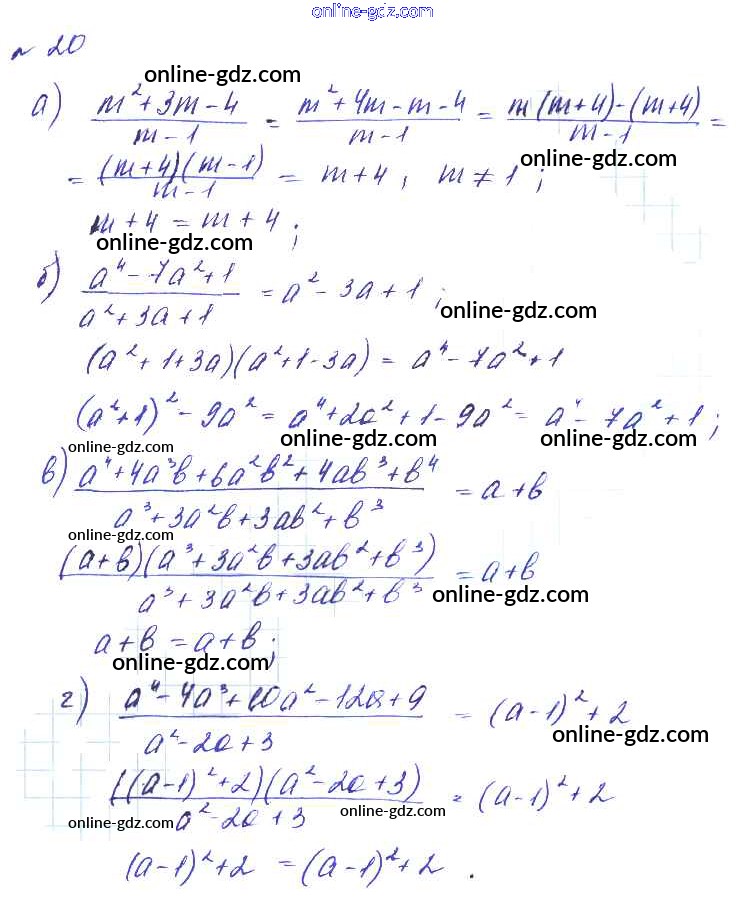 online-gdz.com
№ 20
online-gdz.com
а) (m²+3m-4)/(m-1) = (m²+4m-m-4)/(m-1) = (m(m+4)-(m+4))/(m-1) =
online-gdz.com
= ((m+4)(m-1))/(m-1) = m+4, m≠1;
m+4 = m+4;
online-gdz.com
б) (a⁴-7a²+1)/(a²+3a+1) = a²-3a+1;
online-gdz.com
(a²+1+3a)(a²+1-3a) = a⁴-7a²+1
(a²+1)²-9a² = a⁴+2a²+1-9a² = a⁴-7a²+1;
online-gdz.com online-gdz.com online-gdz.com
в) (a⁴+4a³b+6a²b²+4ab³+b⁴)/(a³+3a²b+3ab²+b³) = a+b
online-gdz.com
((a+b)(a³+3a²b+3ab²+b³))/(a³+3a²b+3ab²+b³) = a+b
online-gdz.com
a+b = a+b;
online-gdz.com
г) (a⁴-4a³+10a²-12a+9)/(a²-2a+3) = (a-1)²+2
online-gdz.com
(((a-1)²+2)(a²-2a+3))/(a²-2a+3) = (a-1)²+2
online-gdz.com online-gdz.com
(a-1)²+2 = (a-1)²+2.